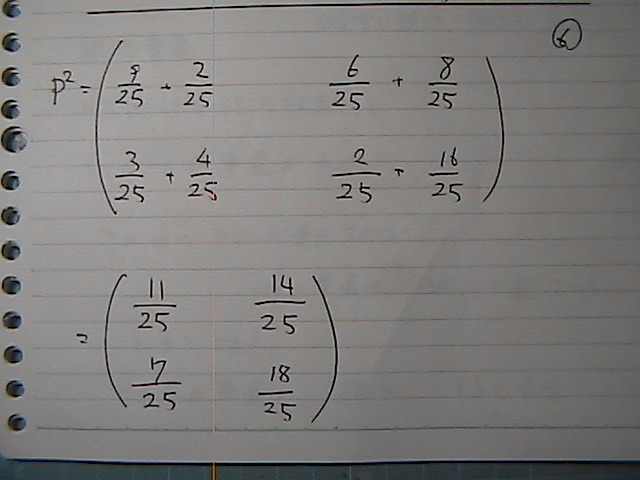 6
P² = ( 9/25 + 2/25   6/25 + 8/25
3/25 + 4/25   2/25 + 16/25 )
= ( 11/25   14/25
7/25   18/25 )